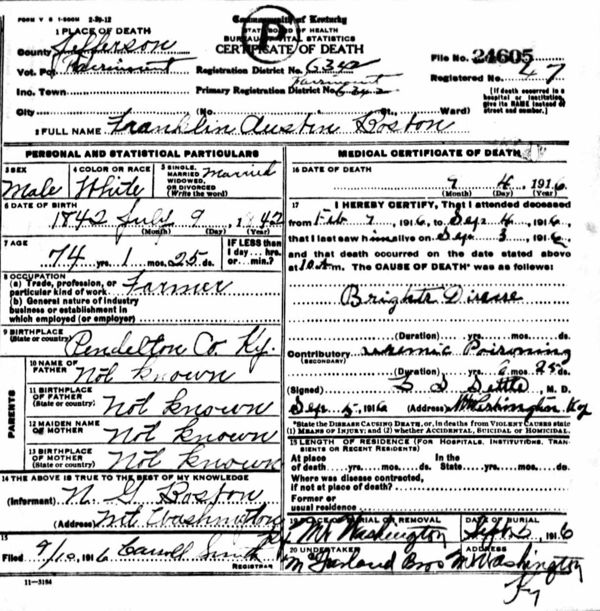 FORM V S 1-500M 2-29-12
Commonwealth of Kentucky
STATE BOARD OF HEALTH
BUREAU OF VITAL STATISTICS
CERTIFICATE OF DEATH
1 PLACE OF DEATH
County Jefferson
Vot. Pct. Fairmount
Inc. Town
City
Registration District No. 6342
Fairmount
Primary Registration District No. 6342
(No. St., Ward)
File No. 24605
Registered No. 47
[If death occurred in a hospital or institution, give its NAME instead of street and number.]
2 FULL NAME Franklin Austin Boston
PERSONAL AND STATISTICAL PARTICULARS
3 SEX
Male
4 COLOR OR RACE
White
5 SINGLE, MARRIED, WIDOWED, OR DIVORCED (Write the word)
Married
6 DATE OF BIRTH
1842 July 9, 1842
(Month) (Day) (Year)
7 AGE
74 yrs. 1 mos. 25 ds.
IF LESS than 1 day ... hrs. or ... min.?
8 OCCUPATION
(a) Trade, profession, or particular kind of work Farmer
(b) General nature of industry business or establishment in which employed (or employer)
9 BIRTHPLACE
(State or country) Pendelton Co. Ky.
PARENTS
10 NAME OF FATHER Not known
11 BIRTHPLACE OF FATHER (State or country) Not known
12 MAIDEN NAME OF MOTHER Not known
13 BIRTHPLACE OF MOTHER (State or country) Not known
14 THE ABOVE IS TRUE TO THE BEST OF MY KNOWLEDGE
(Informant) N. G. Boston
(Address) Mt. Washington Ky
15
Filed 9/10, 1916 Carroll Smith
REGISTRAR
11-3184
MEDICAL CERTIFICATE OF DEATH
16 DATE OF DEATH
9 4, 1916
(Month) (Day) (Year)
17 I HEREBY CERTIFY, That I attended deceased
from Feb 7, 1916, to Sep. 4, 1916,
that I last saw him alive on Sep. 3, 1916,
and that death occurred on the date stated above
at 10 a m. The CAUSE OF DEATH* was as follows:
Brights Disease
(Duration) yrs. mos. ds.
Contributory Uremic Poisoning
(SECONDARY)
(Duration) yrs. 6 mos. 25 ds.
(Signed) Settle, M. D.
Sep. 5, 1916 (Address) Mt Washington, Ky
*State the DISEASE CAUSING DEATH, or, in deaths from VIOLENT CAUSES state (1) MEANS OF INJURY; and (2) whether ACCIDENTAL, SUICIDAL or HOMICIDAL.
18 LENGTH OF RESIDENCE (FOR HOSPITALS, INSTITUTIONS, TRANSIENTS OR RECENT RESIDENTS)
At place of death yrs. mos. ds. In the State yrs. mos. ds.
Where was disease contracted, if not at place of death?
Former or usual residence
19 PLACE OF BURIAL OR REMOVAL
Mt Washington
DATE OF BURIAL
Sept 5, 1916
20 UNDERTAKER
McFarland Bros
ADDRESS
Mt Washington
Ky